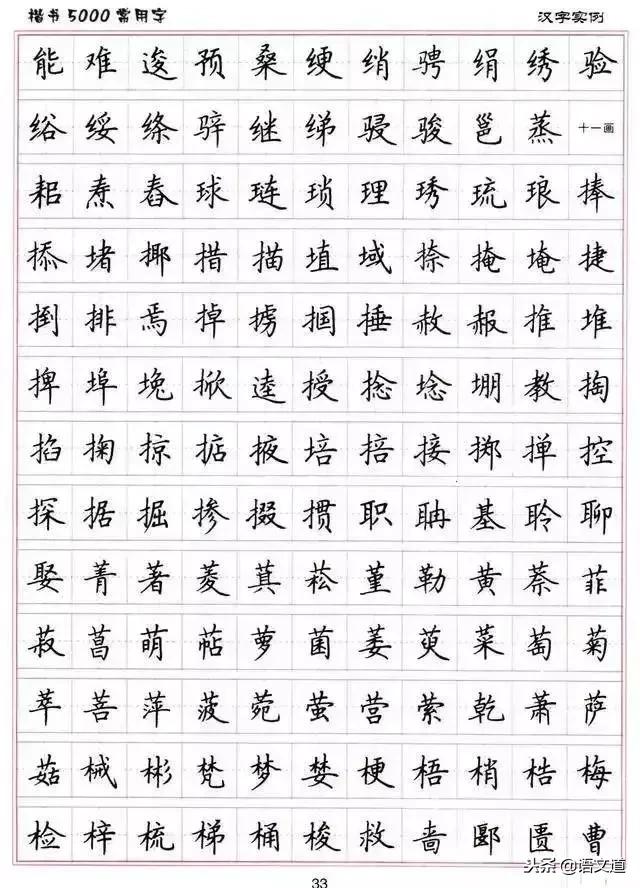 楷书5000常用字 汉字实例
能 难 逡 预 桑 绠 绡 骋 绢 绣 验
绤 绥 绦 骍 继 绨 骎 骏 邕 蒸 十一画
耜 焘 舂 球 琏 琐 理 琇 琉 琅 捧
掭 堵 揶 措 描 埴 域 捺 掩 埯 捷
捯 排 焉 掉 掳 掴 捶 赦 赧 推 堆
捭 埠 堍 掀 逵 授 捻 埝 堋 教 掏
掐 掬 掠 掂 掖 培 掊 接 掷 掸 控
探 据 掘 掺 掇 掼 职 聃 基 聆 聊
娶 菁 著 菱 萁 菘 堇 勒 黄 萘 菲
菽 菖 萌 萜 萝 菌 萎 萸 菜 萄 菊
萃 菩 萍 菠 菀 萤 营 萦 乾 萧 萨
菇 械 彬 梵 梦 婪 梗 梧 梢 梏 梅
检 梓 梳 梯 桶 梭 救 啬 郾 匮 曹
33
头条@语文道